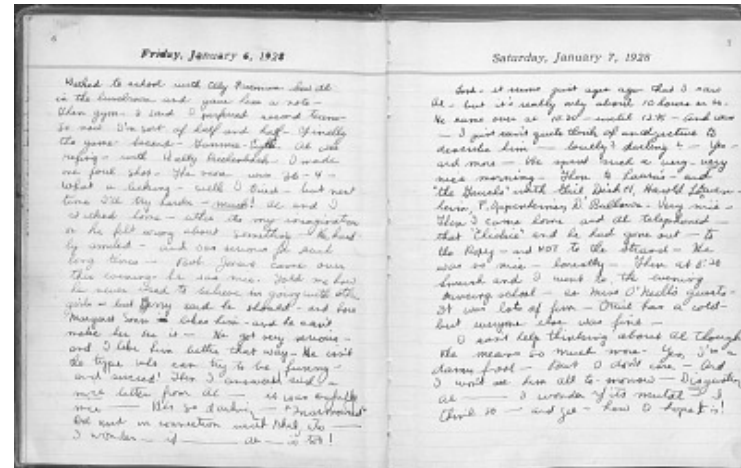 6
Friday, January 6, 1928
Walked to school with
in the lunchroom and gave him a note -
Then gym - I said I preferred second team -
So now I'm sort of half and half - Finally
the game - Al was
- with I made
one foul shot. The score was 36 - 4 -
What a licking - well I tried - but next
time I'll try harder - much! Al and I
walked home - either its my imagination
or he felt wrong about something - He hard-
ly smiled - and was serious for such
long times - Bob came over
this evening - he was nice. Told me how
he never used to believe in going with other
girls - but said he should - and how
Margaret likes him - and he can't
make her see it - He got very serious -
and I like him better that way - He isn't
the type who can try to be funny -
and succeed! Then I answered
nice letter from Al - it was awfully
nice - He's so darling -
in connection with
I wonder - if - Al - is
7
Saturday, January 7, 1928
Gosh - it seems just ages ago that I saw
Al - but it's really only about 10 hours or so.
He came over at 10.20 - until 12.15 - And was
- I just can't quite think of an adjective to
describe him - lovely? darling? - Yes -
and more - We spent such a very - very
nice morning - Then to - and
"the " with Dick H, Harold
P. Oppenheimer, D. - Very nice -
Then I came home and Al telephoned -
that and he had gone out - to
the - and NOT to the Strand - He
was so nice - honestly - Then at 8:20
and I went to the evening
dancing school - as Miss O'Neill's guests -
It was lots of fun - has a cold -
but everyone else was fine -
I can't help thinking about Al though
He means so much more - Yes, I'm a
damn fool - but I don't care - And
I won't see him all to-morrow - Disgusting
Al - I wonder if its mutual - I
think so - and gee - how I hope it is!